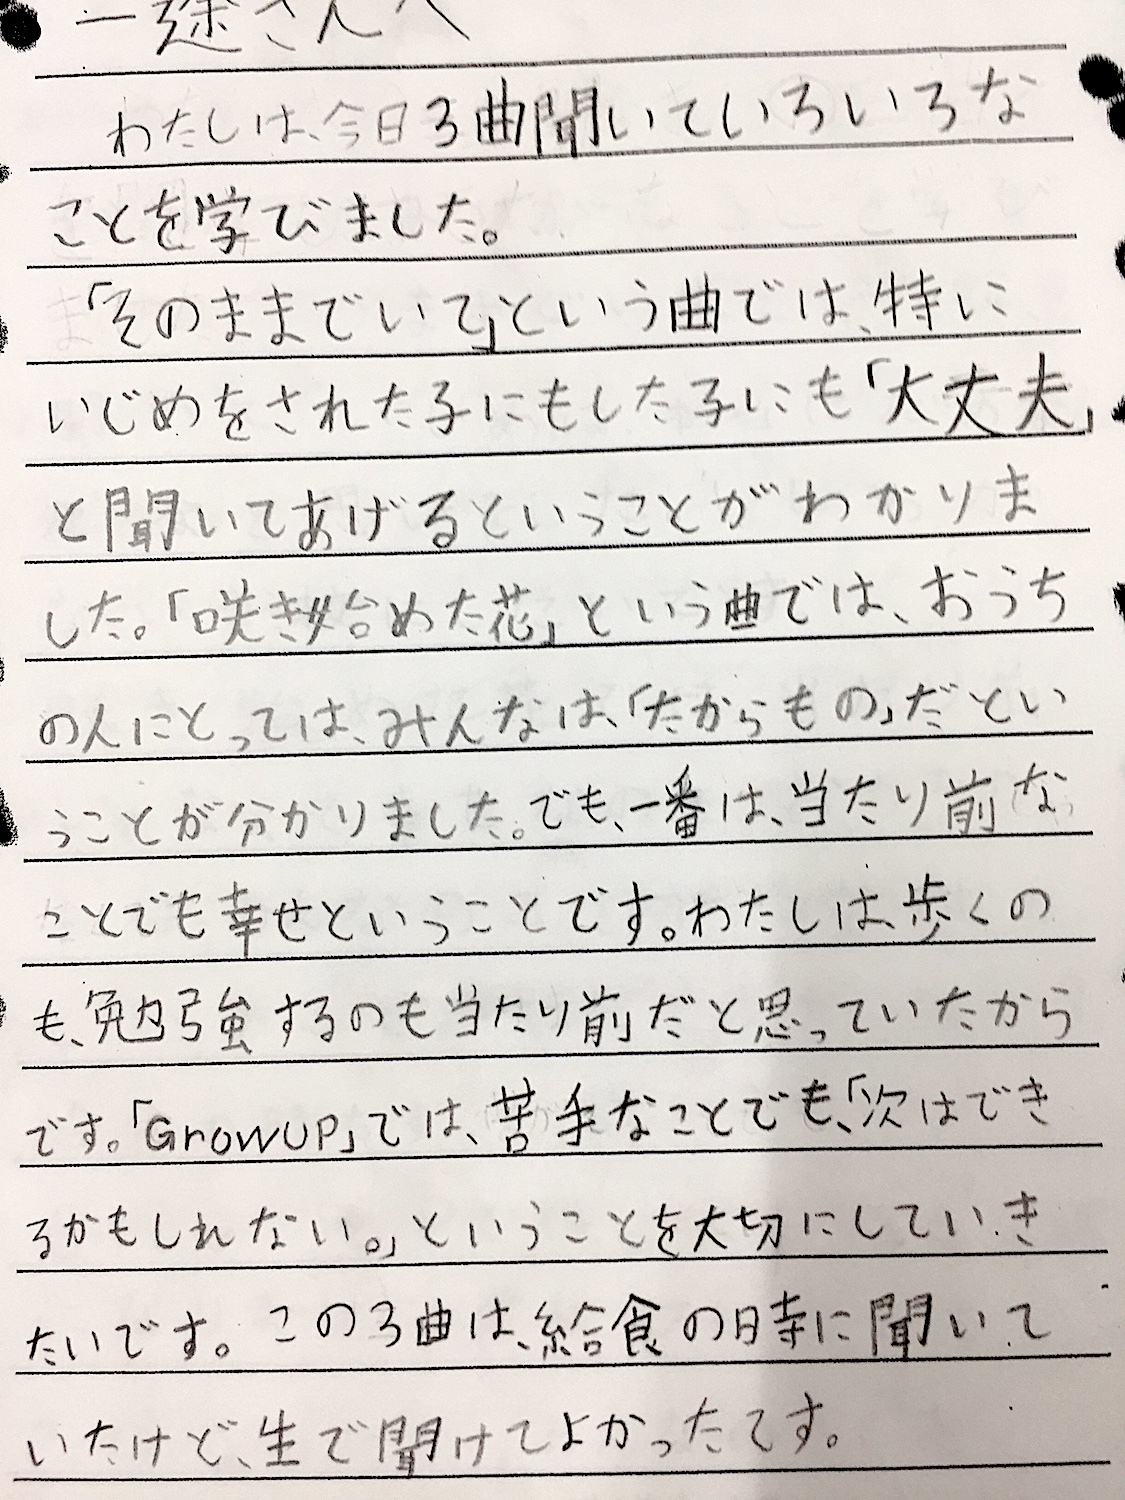 一途さんへ
わたしは、今日3曲聞いていろいろな
ことを学びました。
「そのままでいて」という曲では、特に
いじめをされた子にもした子にも「大丈夫」
と聞いてあげるということがわかりま
した。「咲き始めた花」という曲では、おうち
の人にとっては、みんなは、「たからもの」だとい
うことが分かりました。でも、一番は、当たり前な
ことでも幸せということです。わたしは、歩くの
も、勉強するのも当たり前だと思っていたから
です。「GrowUP」では、苦手なことでも、「次はでき
るかもしれない。」ということを大切にしていき
たいです。この3曲は、給食の時に聞いて
いたけど、生で聞けてよかったてす。